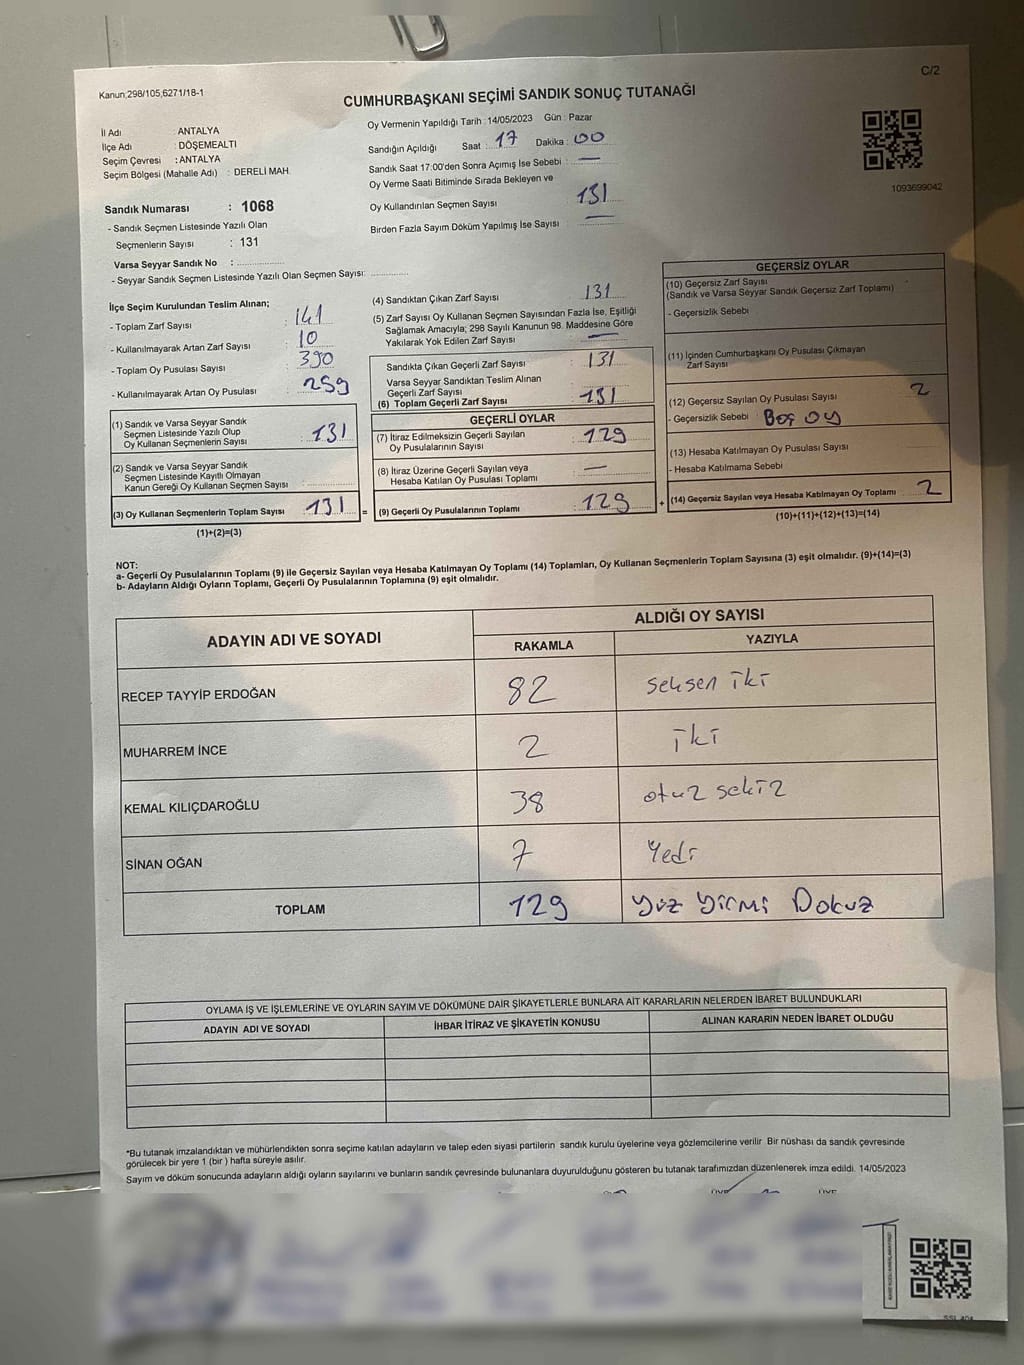 Kanun;298/105,6271/18-1
C/2
CUMHURBAŞKANI SEÇİMİ SANDIK SONUÇ TUTANAĞI
İl Adı : ANTALYA
İlçe Adı : DÖŞEMEALTI
Seçim Çevresi : ANTALYA
Seçim Bölgesi (Mahalle Adı) : DERELİ MAH.
Oy Vermenin Yapıldığı Tarih : 14/05/2023 Gün : Pazar
Sandığın Açıldığı Saat : 17 Dakika : 00
Sandık Saat 17:00'den Sonra Açımış İse Sebebi : —
Oy Verme Saati Bitiminde Sırada Bekleyen ve
Oy Kullandırılan Seçmen Sayısı 131
Birden Fazla Sayım Döküm Yapılmış İse Sayısı : —
1093699042
Sandık Numarası : 1068
- Sandık Seçmen Listesinde Yazılı Olan
Seçmenlerin Sayısı : 131
Varsa Seyyar Sandık No :
- Seyyar Sandık Seçmen Listesinde Yazılı Olan Seçmen Sayısı:
İlçe Seçim Kurulundan Teslim Alınan;
- Toplam Zarf Sayısı : 141
- Kullanılmayarak Artan Zarf Sayısı : 10
- Toplam Oy Pusulası Sayısı : 390
- Kullanılmayarak Artan Oy Pusulası : 259
(1) Sandık ve Varsa Seyyar Sandık
Seçmen Listesinde Yazılı Olup
Oy Kullanan Seçmenlerin Sayısı : 131
(2) Sandık ve Varsa Seyyar Sandık
Seçmen Listesinde Kayıtlı Olmayan
Kanun Gereği Oy Kullanan Seçmen Sayısı :
(3) Oy Kullanan Seçmenlerin Toplam Sayısı : 131 =
(1)+(2)=(3)
(4) Sandıktan Çıkan Zarf Sayısı : 131
(5) Zarf Sayısı Oy Kullanan Seçmen Sayısından Fazla İse, Eşitliği
Sağlamak Amacıyla; 298 Sayılı Kanunun 98. Maddesine Göre
Yakılarak Yok Edilen Zarf Sayısı : —
Sandıkta Çıkan Geçerli Zarf Sayısı : 131
Varsa Seyyar Sandıktan Teslim Alınan
Geçerli Zarf Sayısı
(6) Toplam Geçerli Zarf Sayısı : 131
GEÇERLİ OYLAR
(7) İtiraz Edilmeksizin Geçerli Sayılan
Oy Pusulalarının Sayısı : 129
(8) İtiraz Üzerine Geçerli Sayılan veya
Hesaba Katılan Oy Pusulası Toplamı : —
(9) Geçerli Oy Pusulalarının Toplamı : 129 +
GEÇERSİZ OYLAR
(10) Geçersiz Zarf Sayısı
(Sandık ve Varsa Seyyar Sandık Geçersiz Zarf Toplamı)
- Geçersizlik Sebebi
(11) İçinden Cumhurbaşkanı Oy Pusulası Çıkmayan
Zarf Sayısı
(12) Geçersiz Sayılan Oy Pusulası Sayısı 2
- Geçersizlik Sebebi Boş oy
(13) Hesaba Katılmayan Oy Pusulası Sayısı
- Hesaba Katılmama Sebebi
(14) Geçersiz Sayılan veya Hesaba Katılmayan Oy Toplamı 2
(10)+(11)+(12)+(13)=(14)
NOT:
a- Geçerli Oy Pusulalarının Toplamı (9) ile Geçersiz Sayılan veya Hesaba Katılmayan Oy Toplamı (14) Toplamları, Oy Kullanan Seçmenlerin Toplam Sayısına (3) eşit olmalıdır. (9)+(14)=(3)
b- Adayların Aldığı Oyların Toplamı, Geçerli Oy Pusulalarının Toplamına (9) eşit olmalıdır.
ADAYIN ADI VE SOYADI
ALDIĞI OY SAYISI
RAKAMLA YAZIYLA
RECEP TAYYİP ERDOĞAN 82 seksen iki
MUHARREM İNCE 2 iki
KEMAL KILIÇDAROĞLU 38 otuz sekiz
SİNAN OĞAN 7 Yedi
TOPLAM 129 yüz yirmi Dokuz
OYLAMA İŞ VE İŞLEMLERİNE VE OYLARIN SAYIM VE DÖKÜMÜNE DAİR ŞİKAYETLERLE BUNLARA AİT KARARLARIN NELERDEN İBARET BULUNDUKLARI
ADAYIN ADI VE SOYADI İHBAR İTİRAZ VE ŞİKAYETİN KONUSU ALINAN KARARIN NEDEN İBARET OLDUĞU
*Bu tutanak imzalandıktan ve mühürlendikten sonra seçime katılan adayların ve talep eden siyasi partilerin sandık kurulu üyelerine veya gözlemcilerine verilir. Bir nüshası da sandık çevresinde
görülecek bir yere 1 (bir) hafta süreyle asılır.
Sayım ve döküm sonucunda adayların aldığı oyların sayılarını ve bunların sandık çevresinde bulunanlara duyurulduğunu gösteren bu tutanak tarafımızdan düzenlenerek imza edildi. 14/05/2023